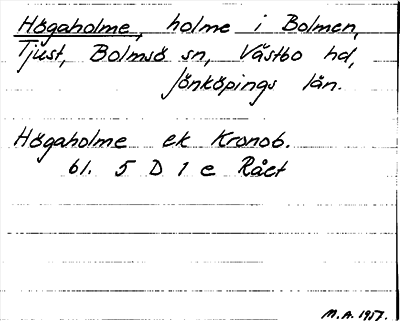 Högaholme, holme i Bolmen,
Tjust, Bolmsö sn, Västbo hd,
Jönköpings län.
Högaholme ek Kronob.
bl. 5 D 1 e Rået
M.A. 1957.